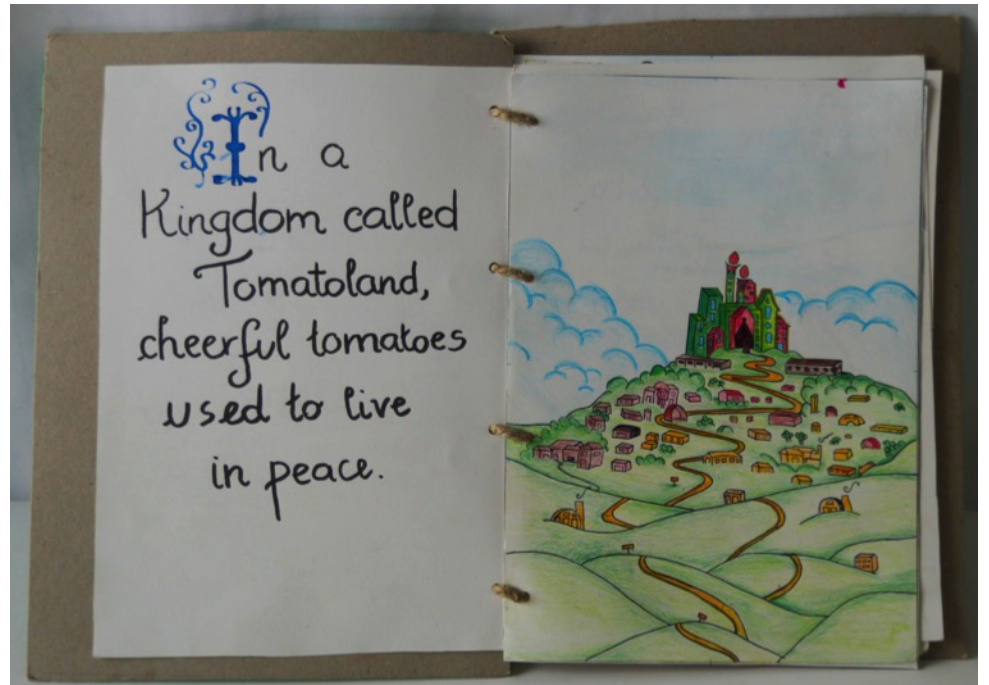 In a
Kingdom called
Tomatoland,
cheerful tomatoes
used to live
in peace.